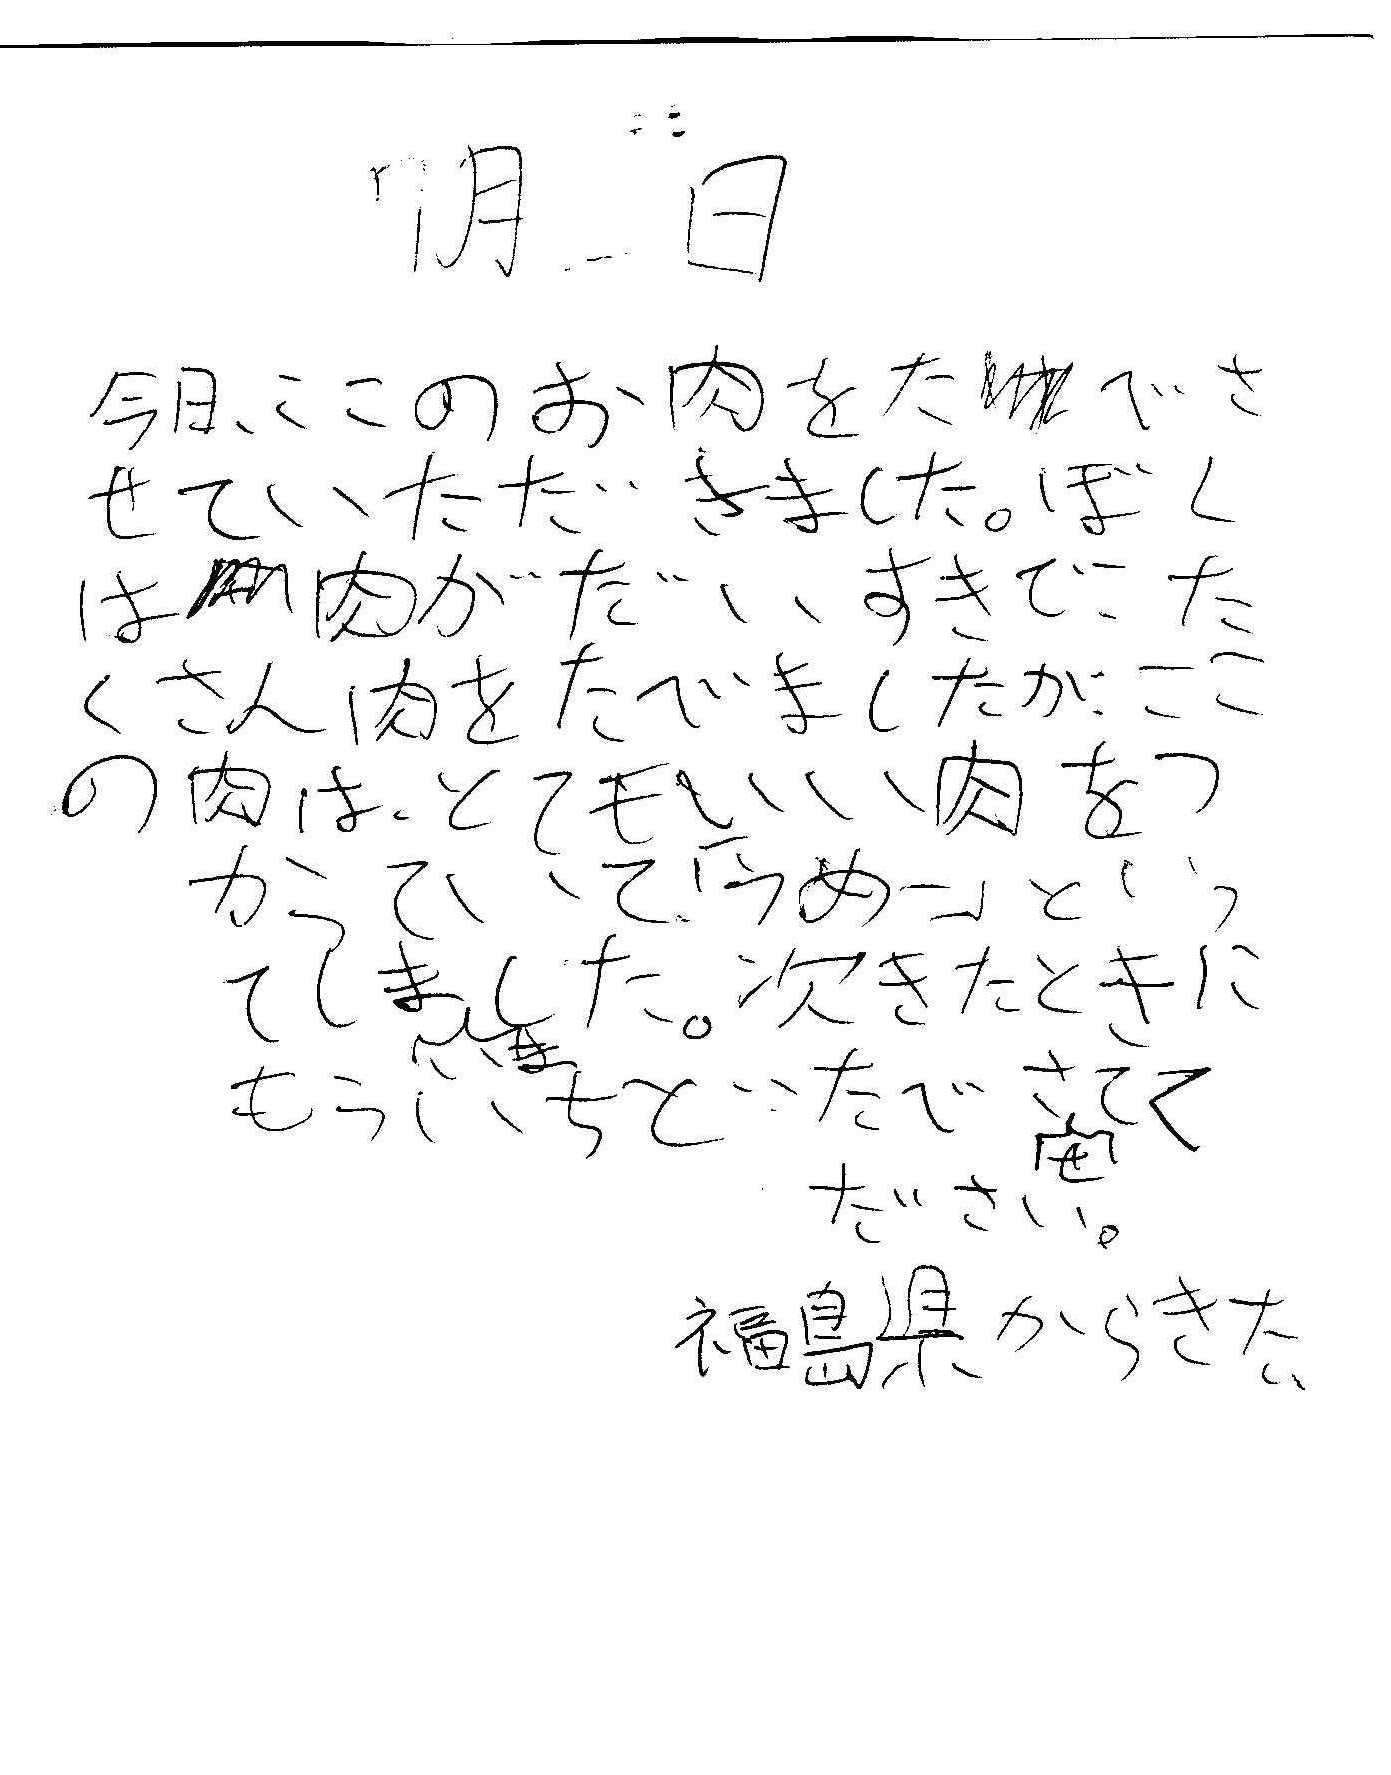 月 日
今日、ここのお肉をたべさ
せていただきました。ぼく
は肉がだいすきでこた
くさん肉をたべましたがここ
の肉は、とてもいい肉をつ
かっていて「うめー」といっ
てしまいました。次きたときに
もういちどたべさせてく
ださい。
福島県からきた